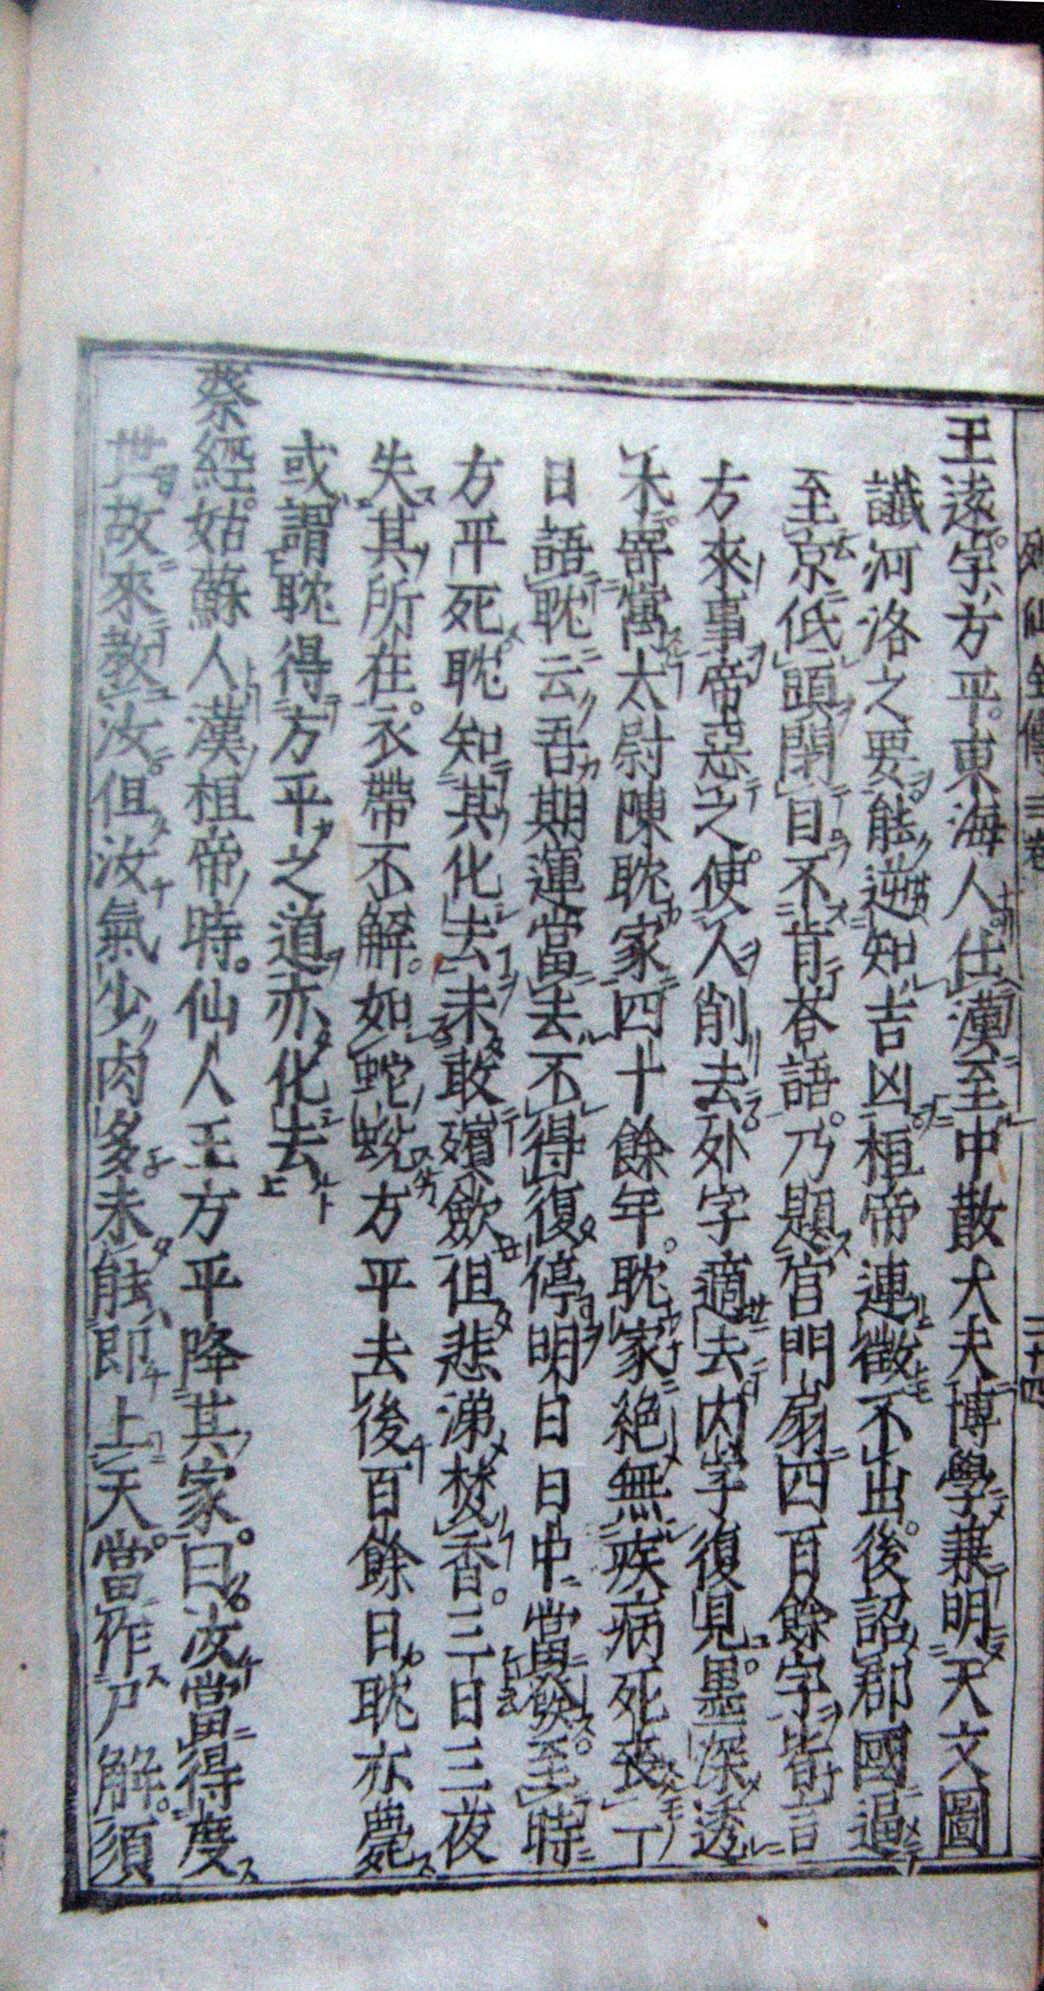 列仙全傳 三卷 二十四
王遠字方平東海人仕漢至中散大夫博學兼明天文圖
讖河洛之要能逆知吉凶桓帝連徵不出後詔郡國逼
至京低頭閉目不肯荅語乃題宮門扇四百餘字皆言
方來事帝惡之使人削去外字適去內字復見墨深透
木寄寓太尉陳耽家四十餘年耽家絕無疾病死喪一
日語耽云吾期運當去不得復停明日日中當發至時
方平死耽知其化去未敢殯歛但悲涕焚香三日三夜
失其所在衣帶不解如蛇蛻方平去後百餘日耽亦薨
或謂耽得方平之道亦化去
蔡經姑蘇人漢桓帝時仙人王方平降其家曰汝當得度
世故來教汝但汝氣少肉多未能即上天當作尸解須